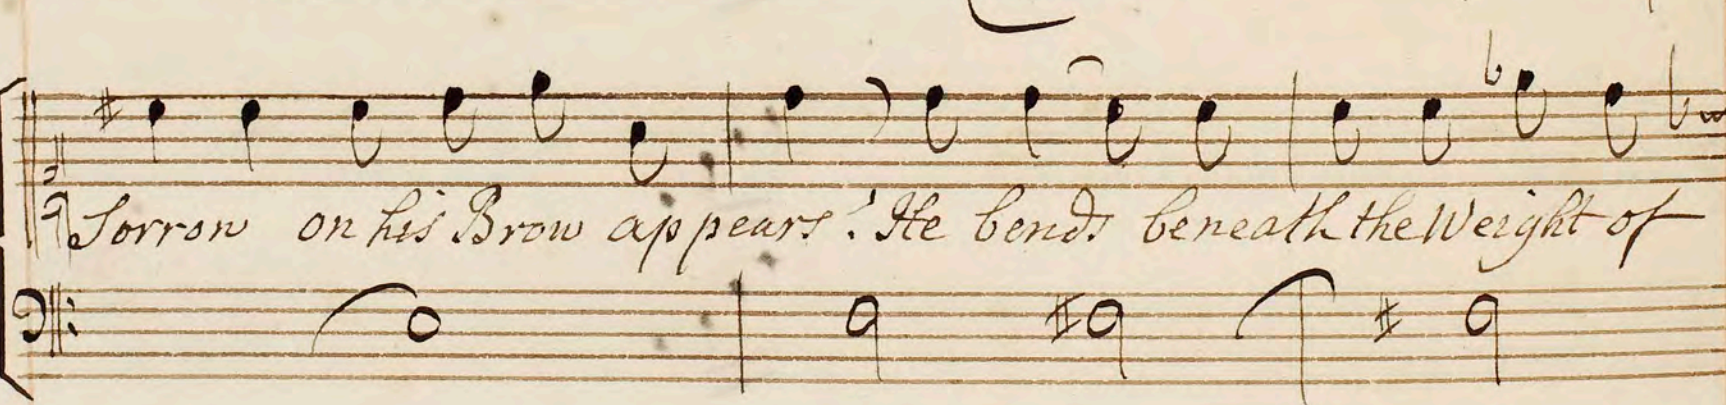 Sorrow on his Brow appears! He bends beneath the Weight of